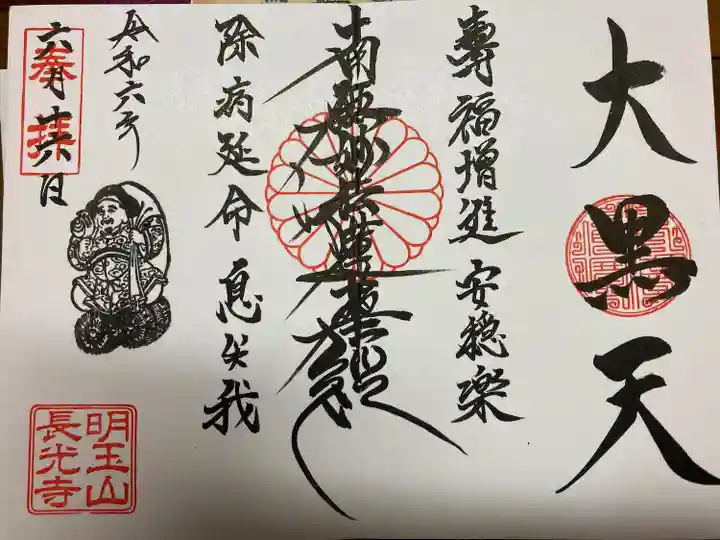 大黒天
壽福増進 安穏樂
南無妙法蓮華経
除病延命 息 我
令和六年
奉拝
六月十六日
明玉山
長光寺